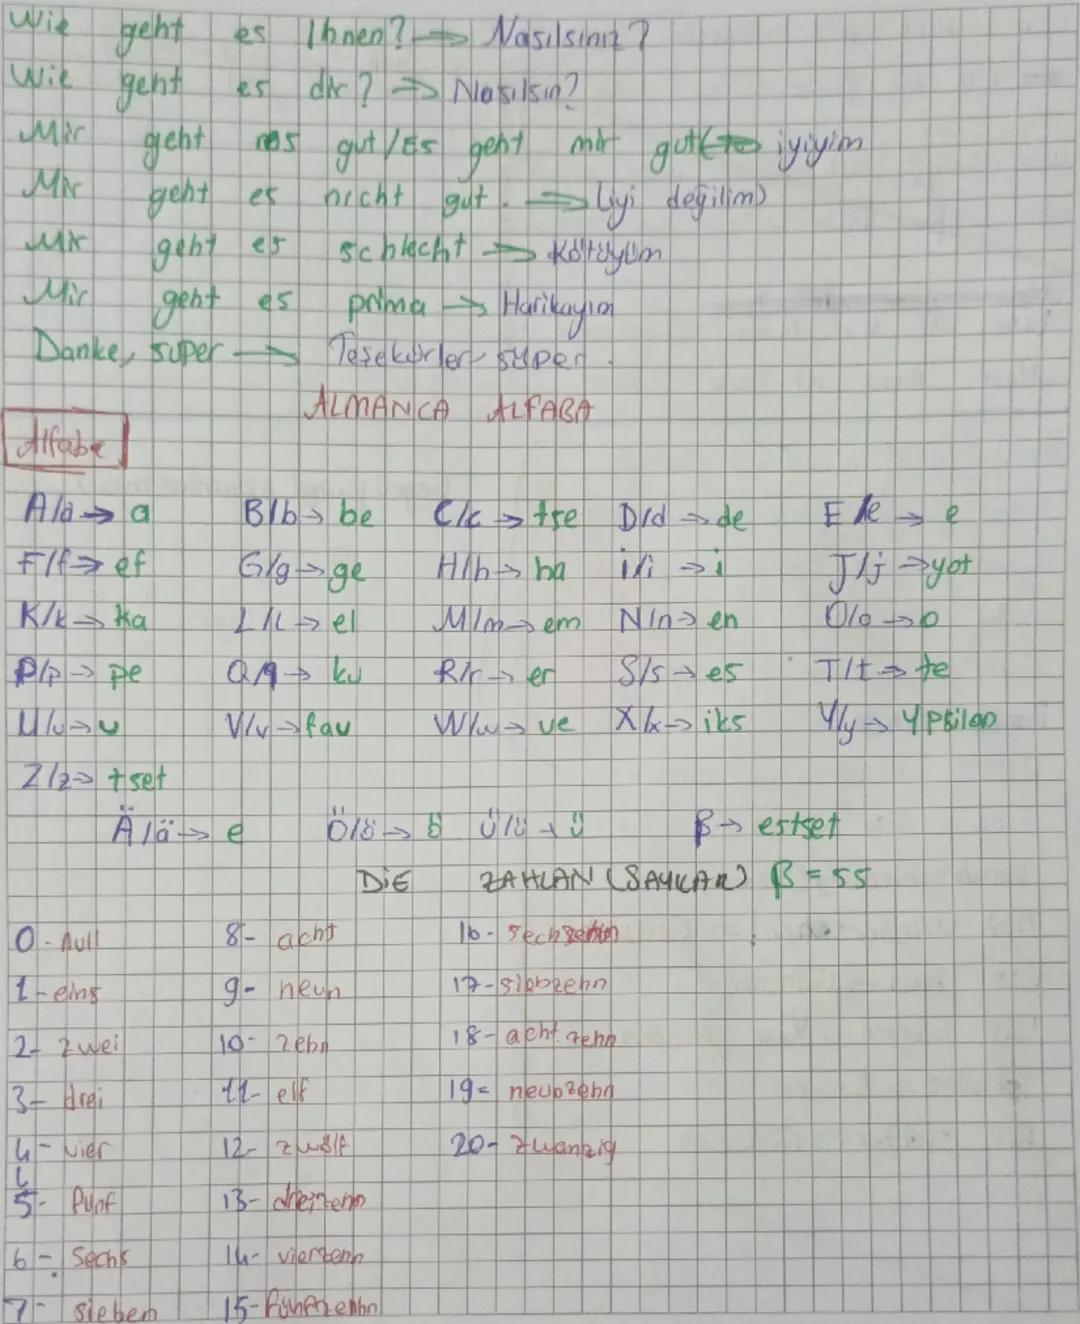 Wie geht es Ihnen? → Nasılsınız?
Wie geht es dir? → Nasılsın?
Mir geht es gut/Es geht mir gut → iyiyim
Mir geht es nicht gut. → (iyi değilim)
Mir geht es schlecht → Kötüyüm
Mir geht es prima → Harikayım
Danke, super → Teşekürler super.
ALMANCA ALFABA
Alfabe
A/a → a B/b → be C/c → tse D/d → de E/e → e
F/f → ef G/g → ge H/h → ha i/i → i J/j → yot
K/k → ka L/l → el M/m → em N/n → en O/o → o
P/p → pe Q/q → ku R/r → er S/s → es T/t → te
U/u → u V/v → fau W/w → ve X/x → iks Y/y → Ypsilon
Z/z → tset
Ä/ä → e Ö/ö → ö Ü/ü → ü ß → estset
DiE ZAHLAN (SAYILAR) ß = ss
0 - null 8- acht 16- sechzehn
1- eins 9- neun 17- siebzehn
2- zwei 10- zehn 18- acht zehn
3- drei 11- elf 19- neunzehn
4- vier 12- zwölf 20- zwanzig
5- fünf 13- dreizehn
6- sechs 14- vierzehn
7- sieben 15- fünfzehn